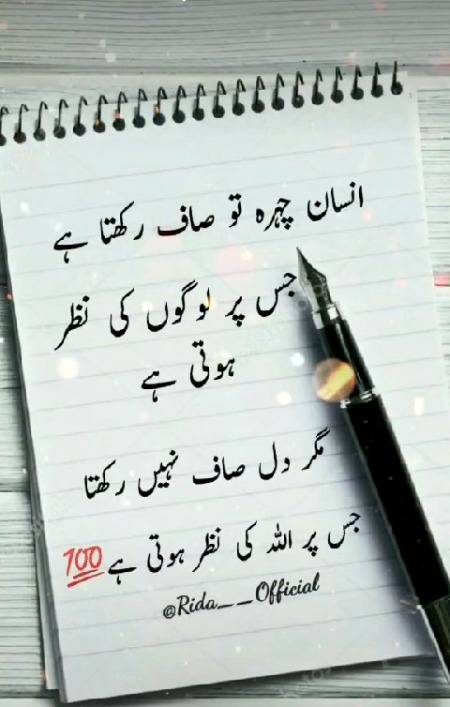 انسان چہرہ تو صاف رکھتا ہے
جس پر لوگوں کی نظر
ہوتی ہے
مگر دل صاف نہیں رکھتا
جس پر اللہ کی نظر ہوتی ہے 💯
@Rida__Official